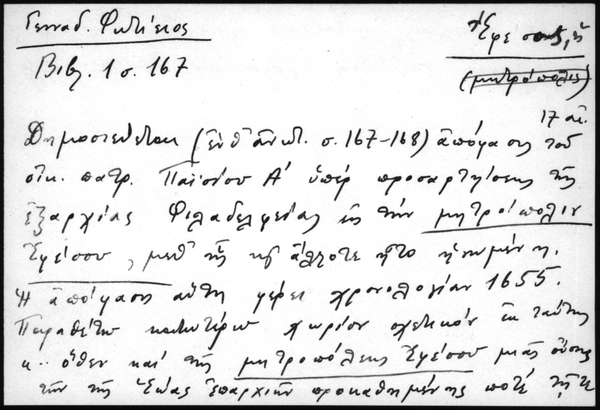 Γενναδ. Φωτίειος
Ἔφεσος, ἡ
Βιβλ. 1 σ. 167
(μητρόπολις)
17 αἰ.
Δημοσιεύεται (ἔνθ' ἀνωτ. σ. 167-168) ἀπόφασις τοῦ
οἰκ. πατρ. Παϊσίου Α' ὑπὲρ προσαρτήσεως τῆς
ἐξαρχίας Φιλαδελφείας εἰς τὴν μητρόπολιν
Ἐφέσου, μεθ' ἧς καὶ ἄλλοτε ἦτο ἡνωμένη.
Ἡ ἀπόφασις αὕτη φέρει χρονολογίαν 1655.
Παραθέτω κατωτέρω χωρίον σχετικὸν ἐκ ταύτης
κ.. ὅθεν καὶ τῆς μητροπόλεως Ἐφέσου μιᾶς οὔσης
τῶν τῆς Ἑῴας ἐπαρχιῶν προκαθημένης ποτέ